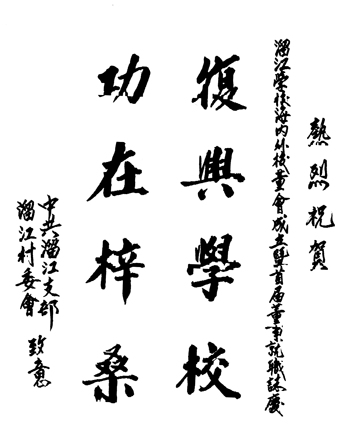 熱烈祝賀
溜江學校海內外校董會成立暨首届董事就職誌慶
復興學校
功在梓桑
中共溜江支部
溜江村委會
致意